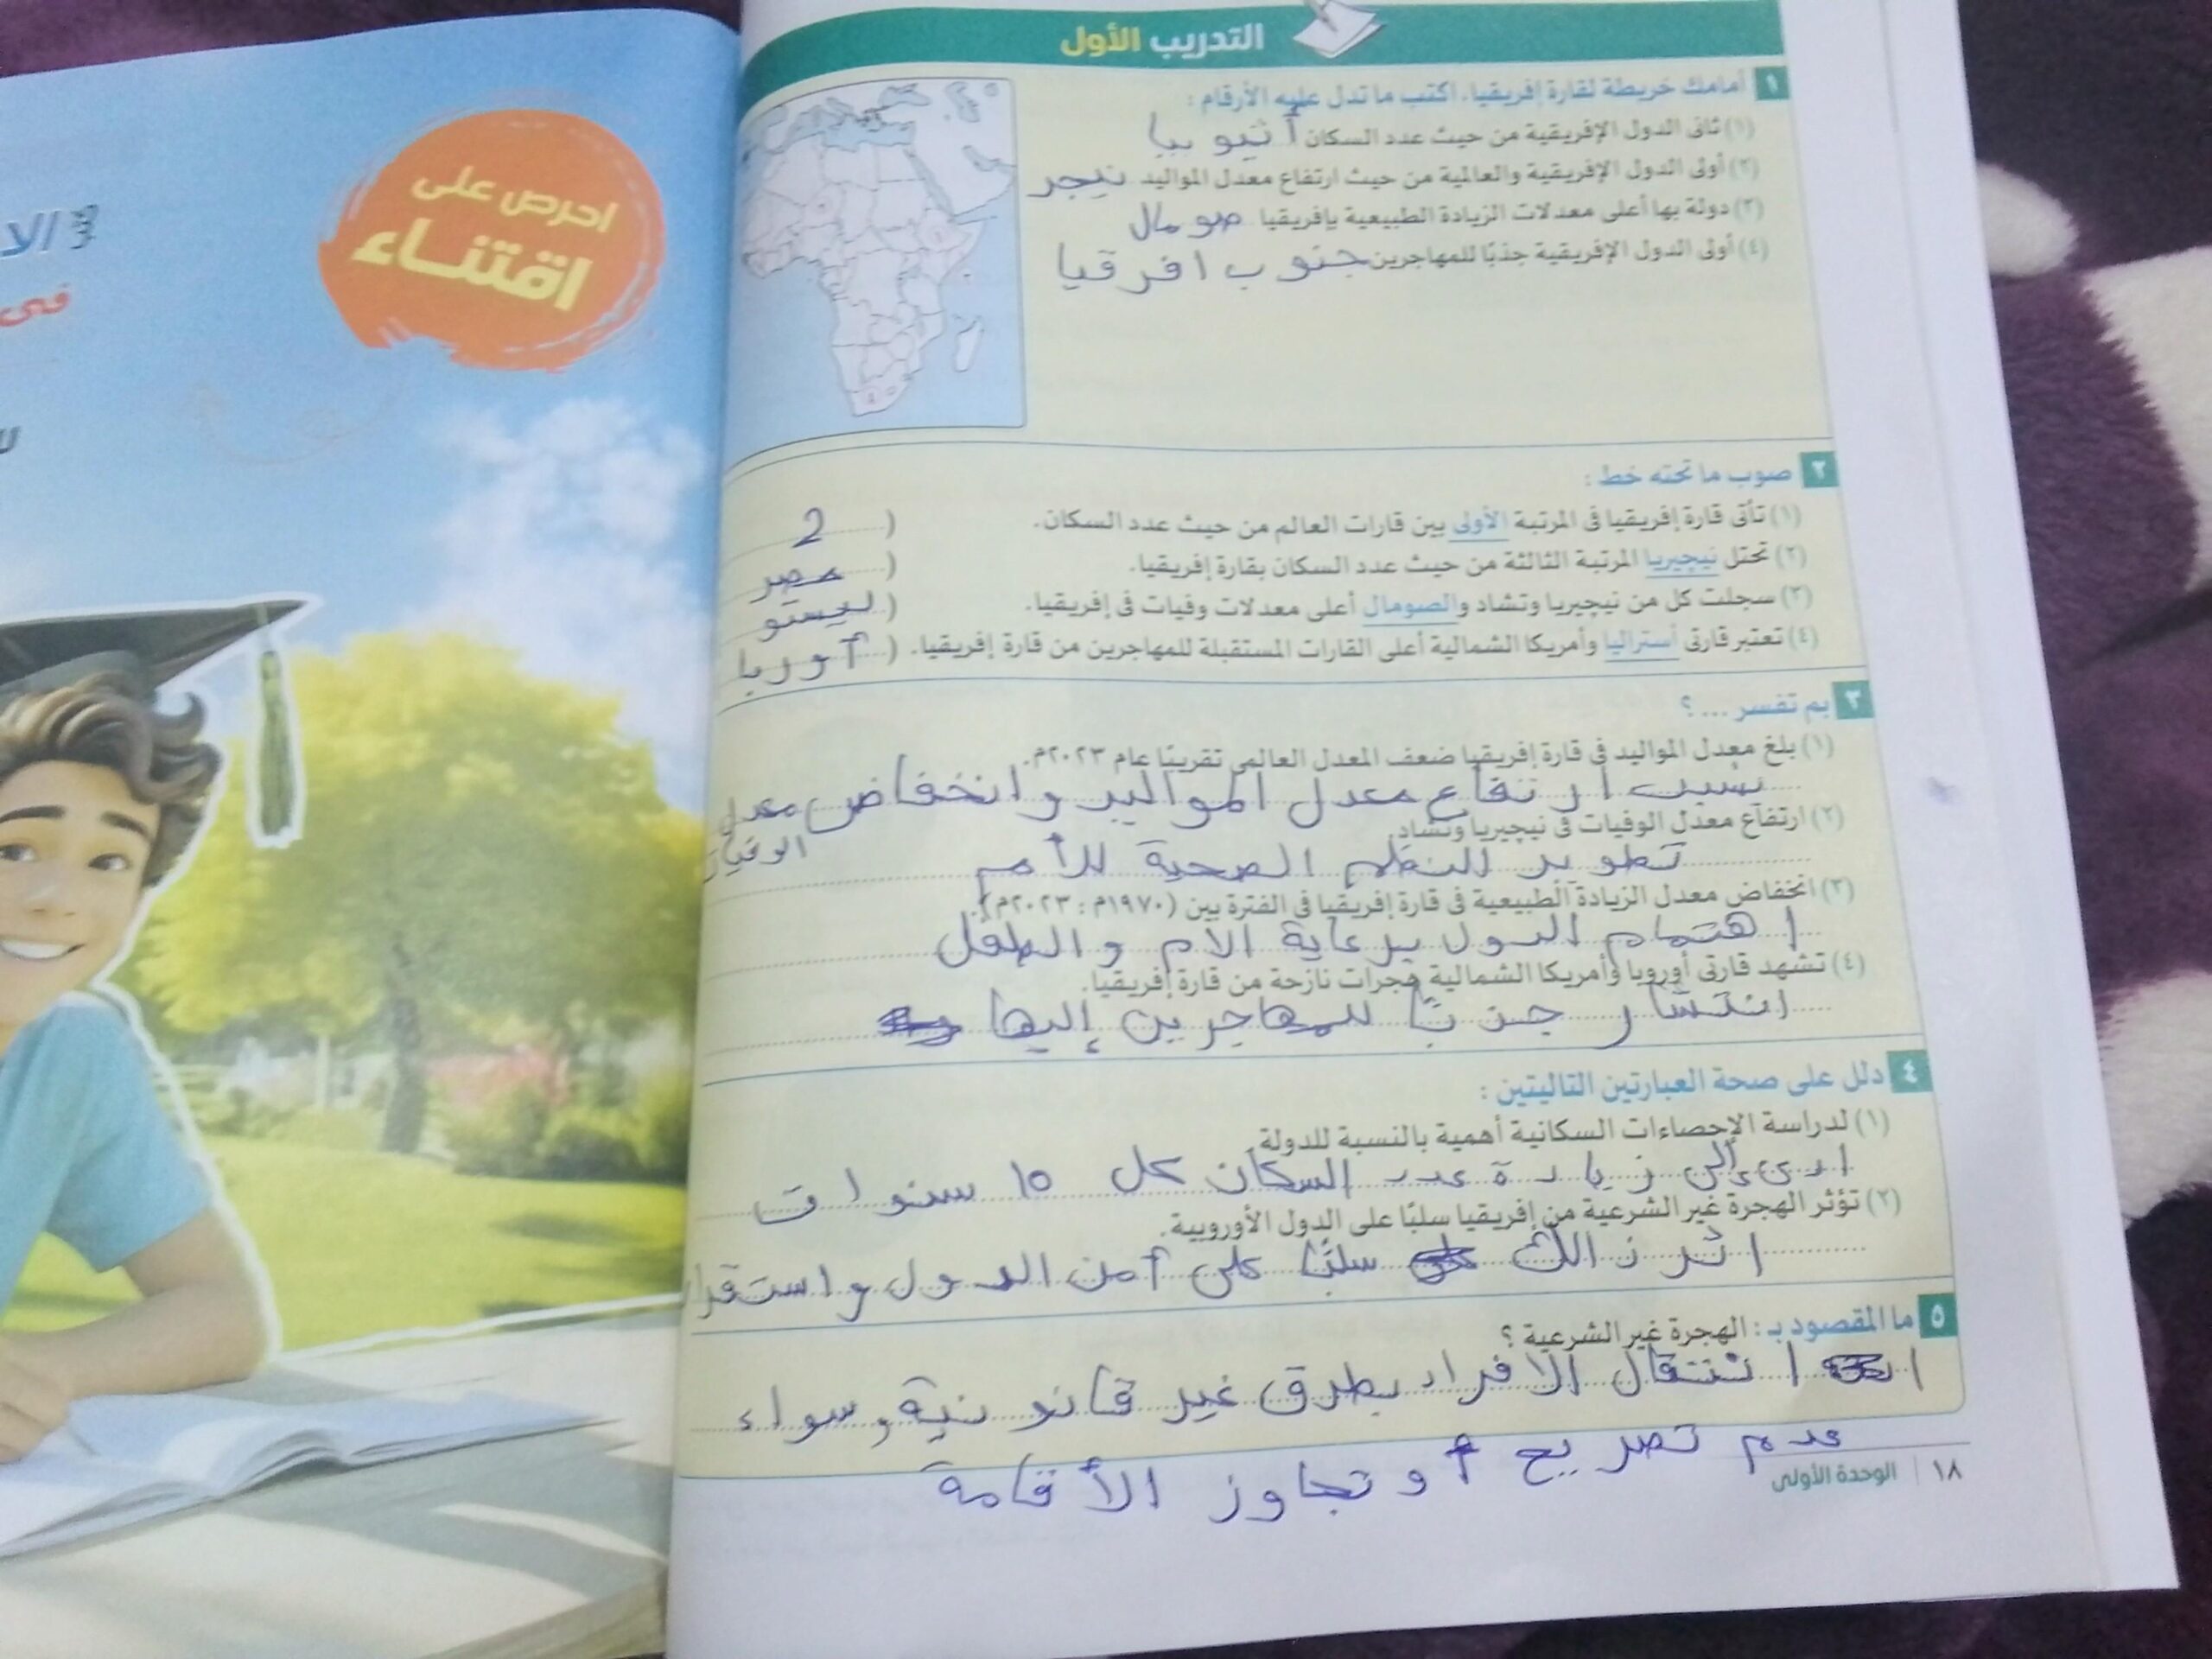 احرص على
اقتناء
في
التدريب الأول
١ أمامك خريطة لقارة إفريقيا، اكتب ما تدل عليه الأرقام :
(١) ثاني الدول الإفريقية من حيث عدد السكان أثيوبيا
(٢) أولى الدول الإفريقية والعالمية من حيث ارتفاع معدل المواليد نيجر
(٣) دولة بها أعلى معدلات الزيادة الطبيعية بإفريقيا صومال
(٤) أولى الدول الإفريقية جذبًا للمهاجرين جنوب افرقيا
٢ صوب ما تحته خط :
(١) تأتي قارة إفريقيا في المرتبة الأولى بين قارات العالم من حيث عدد السكان. ( 2
(٢) تحتل نيجيريا المرتبة الثالثة من حيث عدد السكان بقارة إفريقيا. ( مصر
(٣) سجلت كل من نيجيريا وتشاد والصومال أعلى معدلات وفيات في إفريقيا. ( ليستو
(٤) تعتبر قارتي أستراليا وأمريكا الشمالية أعلى القارات المستقبلة للمهاجرين من قارة إفريقيا. ( أوربا
٣ بم تفسر ... ؟
(١) بلغ معدل المواليد في قارة إفريقيا ضعف المعدل العالمي تقريبًا عام ٢٠٢٣م.
بسبب ارتفاع معدل المواليد وانخفاض معدل
الوفيات
(٢) ارتفاع معدل الوفيات في نيجيريا وتشاد.
تطوير النظم الصحية للأمم
(٣) انخفاض معدل الزيادة الطبيعية في قارة إفريقيا في الفترة بين (١٩٧٠م : ٢٠٢٣م).
اهتمام الدول برعاية الأم والطفل
(٤) تشهد قارتي أوروبا وأمريكا الشمالية هجرات نازحة من قارة إفريقيا.
انتشار جذبًا للمهاجرين إليها
٤ دلل على صحة العبارتين التاليتين :
(١) لدراسة الإحصاءات السكانية أهمية بالنسبة للدولة.
ادى إلى زيادة عدد السكان كل 10 سنوات
(٢) تؤثر الهجرة غير الشرعية من إفريقيا سلبًا على الدول الأوروبية.
اثر ذالك سلبًا على أمن الدول واستقرار
٥ ما المقصود بـ : الهجرة غير الشرعية ؟
انتقال الافراد بطرق غير قانونية, سواء
عدم تصريح أو تجاوز الأقامة
١٨ | الوحدة الأولى